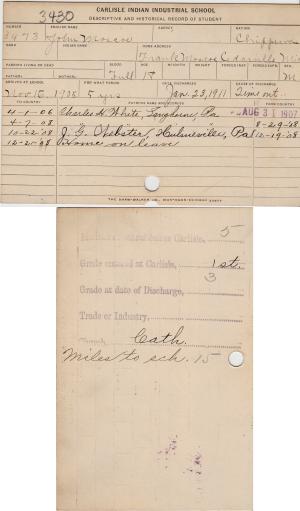 CARLISLE INDIAN INDUSTRIAL SCHOOL
DESCRIPTIVE AND HISTORICAL RECORD OF STUDENT
3430
NUMBER ENGLISH NAME AGENCY NATION
3473 John Monroe Chippewa
INDIAN NAME HOME ADDRESS
Frank Monroe
PARENTS LIVING OR DEAD BLOOD AGE HEIGHT WEIGHT FORCED INSP. FORCED EXPR. SEX
FATHER MOTHER Full 15 M
ARRIVED AT SCHOOL FOR WHAT PERIOD DATE DISCHARGED CAUSE OF DISCHARGE
Nov. 15, 1905 5 yrs Jan 23, 1911 Time out
TO COUNTRY PATRONS NAME AND ADDRESS FROM COUNTRY
4-1-06 Charles H. White, Langhorne, Pa AUG 31 1907
4-7-08 8-29-08
10-22-08 J. G. Webster, Hulmeville, Pa 12-19-08
Home on leave
5
Grade entered at Carlisle, 1st
3
Grade at date of Discharge,
Trade or Industry,
Church, Cath.
Miles to sch. 15